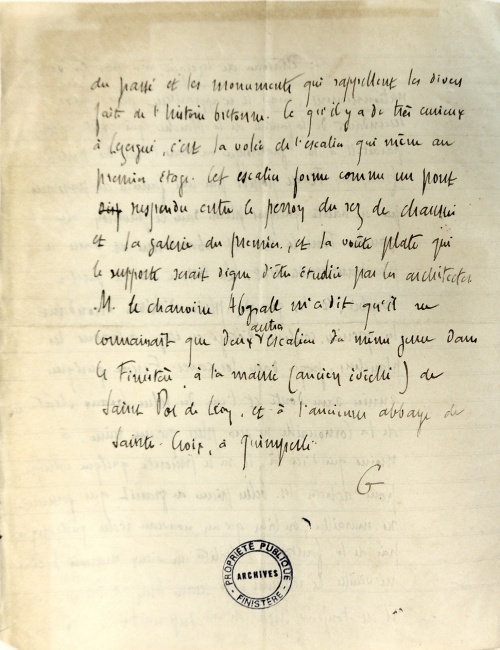 du passé et les monuments qui rappellent les divers
fait de l'histoire bretonne. Ce qu'il y a de très curieux
à Lézergué, c'est la volée de l'escalier qui mène au
premier étage. Cet escalier forme comme un pont
suspendu entre le perron du rez de chaussée
et la galerie du premier, et la voûte plate qui
le supporte serait digne d'être étudiée par les architectes
M. le chanoine Abgrall m'a dit qu'il ne
connaissait que deux autres escaliers du même genre dans
le Finistère, à la mairie (ancien évêché) de
Saint Pol de Léon, et à l'ancienne abbaye de
Sainte-Croix, à Quimperlé.
G
PROPRIÉTÉ PUBLIQUE
ARCHIVES
FINISTÈRE